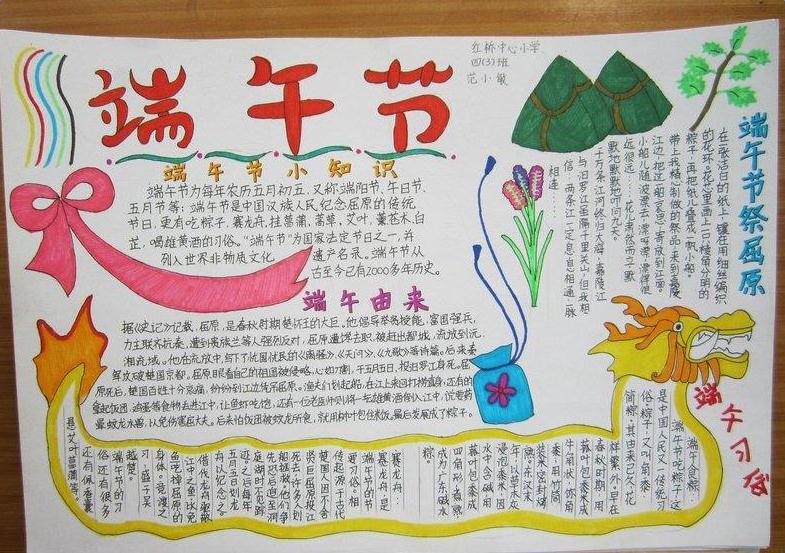 红桥中心小学
四(3)班
范小敏
端午节
端午节小知识
端午节为每年农历五月初五,又称端阳节、午日节、
五月节等;端午节是中国汉族人民纪念屈原的传统
节日,更有吃粽子,赛龙舟,挂菖蒲、蒿草、艾叶,薰苍术、白
芷,喝雄黄酒的习俗。“端午节”为国家法定节日之一,并
列入世界非物质文化遗产名录。端午节从
古至今已有2000多年历史。
端午由来
据《史记》记载,屈原,是春秋时期楚怀王的大臣。他倡导举贤授能,富国强兵,
力主联齐抗秦,遭到贵族兰等人强烈反对,屈原遭馋去职,被赶出都城,流放到沅、
湘流域。他在流放中,写下了忧国忧民的《离骚》、《天问》、《九歌》等诗篇。后来秦
军攻破楚国京都。屈原眼看自己的祖国被侵略,心如刀割,于五月五日,投汨罗江身死。屈
原死后,楚国百姓十分哀痛,纷纷到江边凭吊屈原。渔夫们划起船,在江上来回打捞真身,还有的
拿起饭团、鸡蛋等食物丢进江中,让鱼虾吃饱,还有一位老医师则将一坛雄黄酒倒入江中,
晕蛟龙水兽,以免伤害屈大夫。后来怕饭团被蛟龙所食,就用树叶包住米饭。最后发展成了粽子。
端午节祭屈原
在一张洁白的纸上,镶在用细丝编织
的花环,花芯里画上一只棱角分明的
粽子,再把纸儿叠成一帆小船。
带上我精心制做的祭品,来到嘉陵
江边,把这一船哀思,寄放到江面。
小船儿随波漂去,漂呀漂,漂得很
远很远……
默地默默地叩问九天。
千万条江河终归大海,嘉陵江
与汨罗江虽隔千里关山,但我相
信,两条江一定息息相通,一脉
相连……
端午习俗
端午食粽:
端午节吃粽子,这
是中国人民又一传统习
俗。粽子,又叫“角黍”、
“筒粽”。其由来已久,花
样繁多。
春秋时期,用
菰叶包黍米成
牛角状,称“角
黍”;用竹筒
装米密封烤
熟,东汉末
年,以草木灰
浸泡黍米,因
水中含碱,用
菰叶包黍米成
四角形,煮熟,
成为广东碱水
粽。
赛龙舟:
赛龙舟,是
端午节的主
要习俗。相
传起源于古代
楚国人因不舍
贤臣屈原投江
死去,许多人划
船追赶拯救。他们争
先恐后,追至洞
庭湖时不见踪
迹。之后每年
五月五日划龙
舟以纪念之。
借划龙舟驱散
江中之鱼,以免
鱼吃掉屈原的
身体。竞渡之
习,盛于吴、
越、楚。
端午节的习
俗还有很多,
还有佩香囊、
悬艾叶菖蒲等。